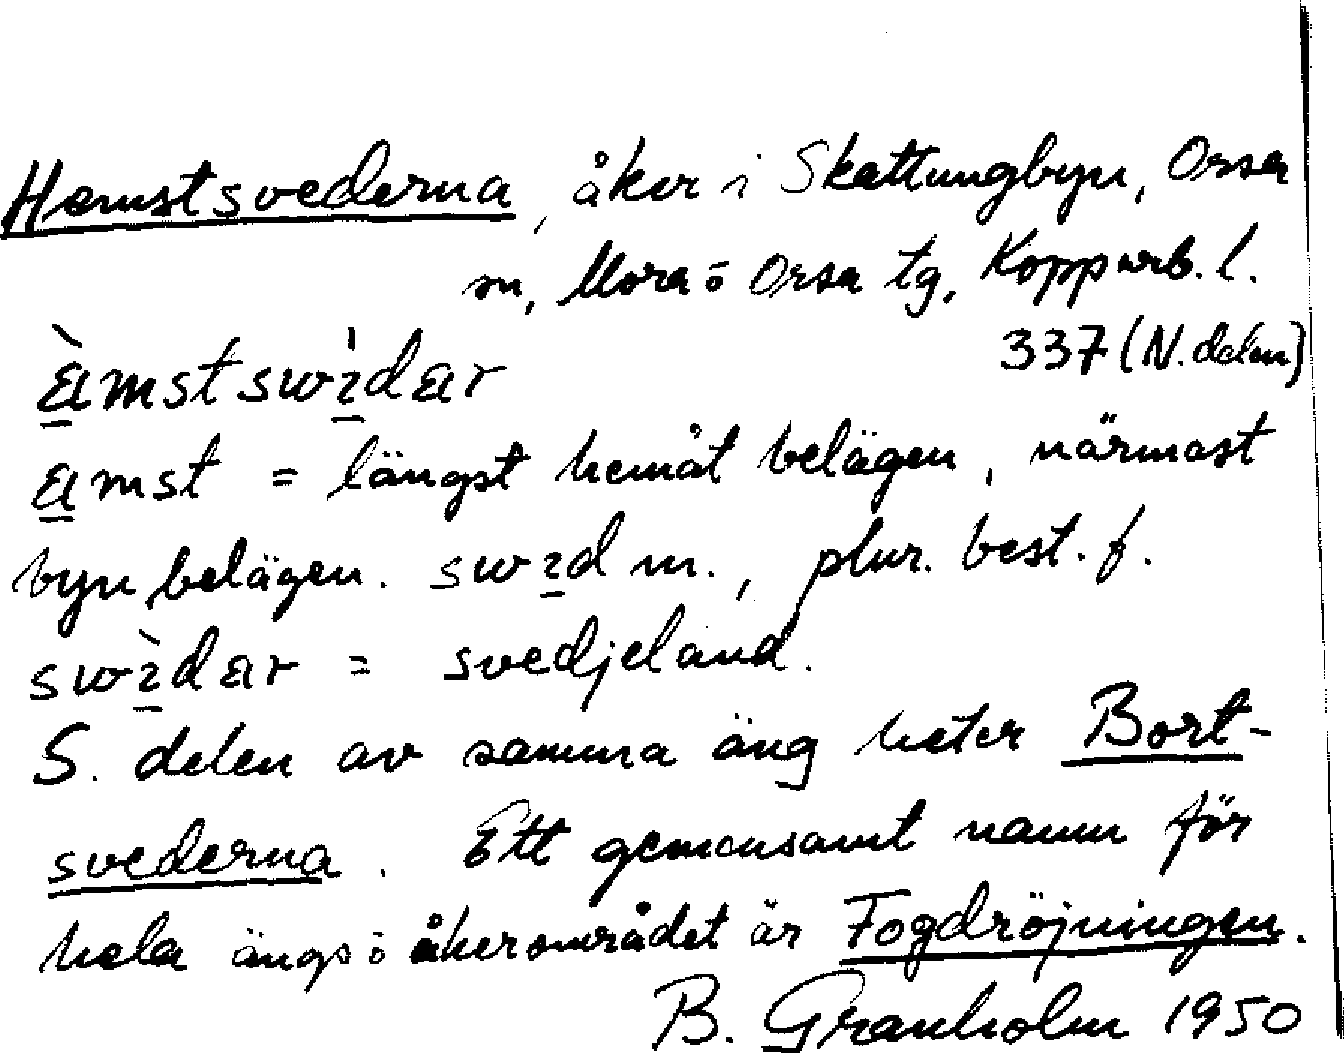 Hemstsvederna, åker i Skattungbyn, Orsa
sn, Mora o Orsa tg, Kopparb. l.
337 (N. delen)
àmstswìdar
amst = längst hemåt belägen, närmast
byn belägen. swid m., plur. best. f.
swìdar = svedjeland.
S. delen av samma äng heter Bort-
svederna. Ett gemensamt namn för
hela ängs o åkerområdet är Fogdröjningen.
B. Granholm 1950